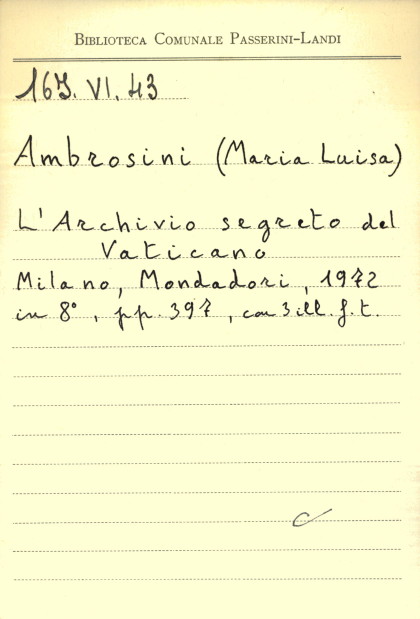 BIBLIOTECA COMUNALE PASSERINI-LANDI
167. VI. 43
Ambrosini (Maria Luisa)
L'Archivio segreto del
Vaticano
Milano, Mondadori, 1972
in 8°, pp. 397, con 3 ill. f. t.